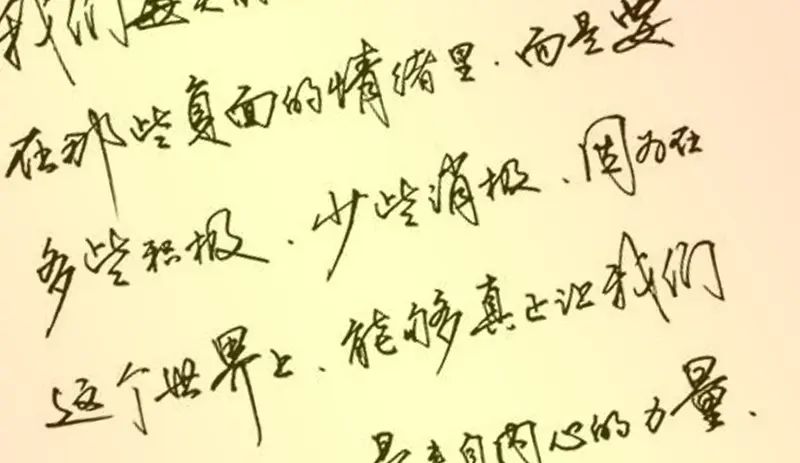 我们
在那些负面的情绪里.而是要
多些积极、少些消极、因为在
这个世界上、能够真正让我们
是来自内心的力量、